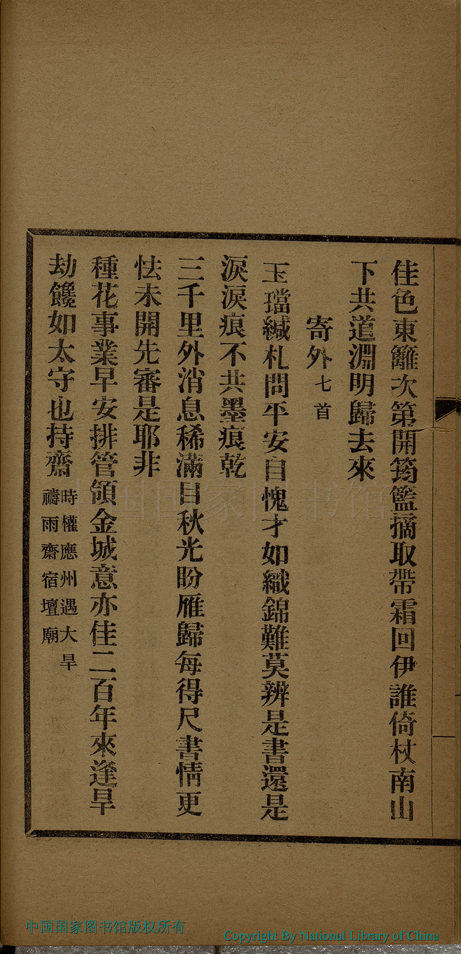 佳色東籬次第開筠籃摘取帶霜回伊誰倚杖南山
下共道淵明歸去來
寄外七首
玉璫緘札問平安自愧才如織錦難莫辨是書還是
淚淚痕不共墨痕乾
三千里外消息稀滿目秋光盼雁歸每得尺書情更
怯未開先審是耶非
種花事業早安排管領金城意亦佳二百年來逢旱
劫饞如太守也持齋時權應州遇大旱
禱雨齋宿壇廟
中国国家图书馆版权所有
Copyright By National Library of China